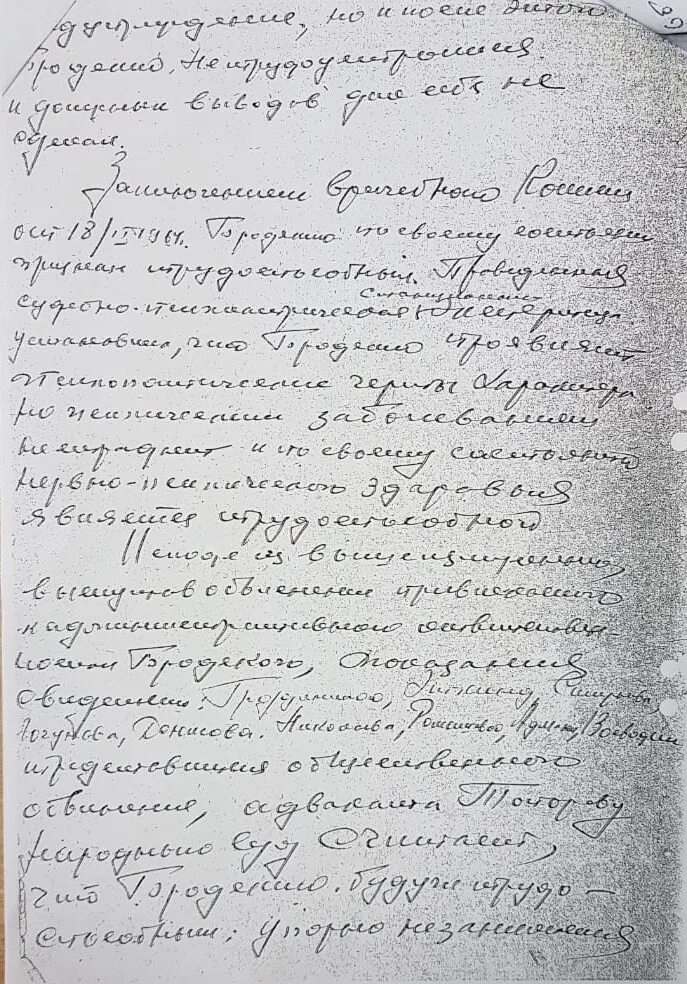 предупреждение, но и после этого
Бродский не трудоустроился
и должных выводов для себя не
сделал.
Заключением врачебной комиссии
от 18/II 1964. Бродский по своему состоянию
признан трудоспособным. Проведенная
стационарная
судебно-психиатрическая экспертиза
установила, что Бродский проявляет
психопатические черты характера
но психическим заболеванием
не страдает и по своему состоянию
нервно-психического здоровья
является трудоспособным
Исходя из вышеизложенного,
выслушав объяснения привлекаемого
к административной ответствен-
ности Бродского, показания
свидетелей: Грудининой, Эткинд, Смирнова
Логунова, Денисова, Николаева, Ромашовой, Адмони, Воеводин
представителя общественного
обвинения, адвоката Топорову
народный суд считает,
что Бродский, будучи трудо-
способным, упорно не занимается